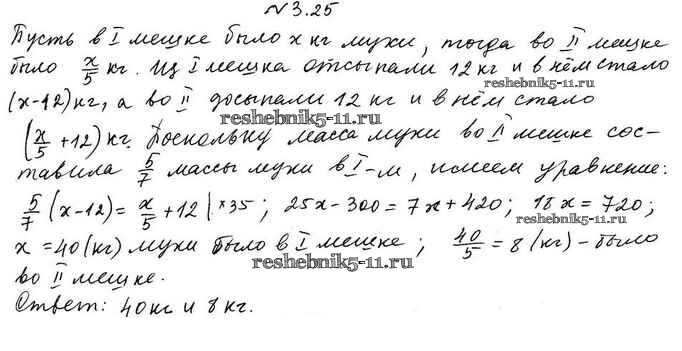 №3.25
Пусть в I мешке было x кг муки, тогда во II мешке
было x/5 кг. Из I мешка отсыпали 12 кг и в нём стало
reshebnik5-11.ru
(x-12) кг, а во II досыпали 12 кг и в нём стало
reshebnik5-11.ru
(x/5 +12) кг. Поскольку масса муки во II мешке сос-
тавила 5/7 массы муки в I-м, имеем уравнение:
5/7 (x-12) = x/5 +12 | ×35; 25x-300=7x+420; 18x=720;
reshebnik5-11.ru
x=40 (кг) муки было в I мешке; 40/5 = 8 (кг) – было
reshebnik5-11.ru
во II мешке.
Ответ: 40 кг и 8 кг.